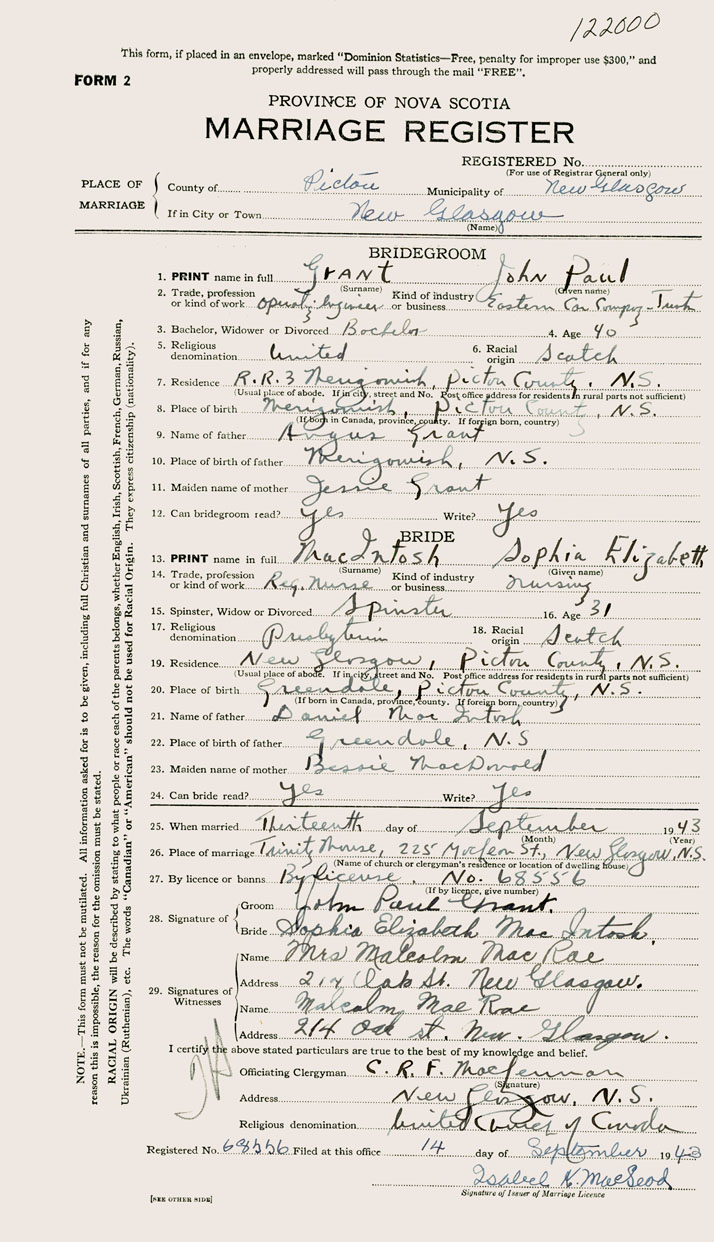 122000
This form, if placed in an envelope, marked "Dominion Statistics—Free, penalty for improper use $300," and
properly addressed will pass through the mail "FREE".
FORM 2
PROVINCE OF NOVA SCOTIA
MARRIAGE REGISTER
REGISTERED No.
(For use of Registrar General only)
PLACE OF MARRIAGE
County of Pictou Municipality of New Glasgow
If in City or Town New Glasgow
(Name)
BRIDEGROOM
1. PRINT name in full GRANT John Paul
(Surname) (Given name)
2. Trade, profession or kind of work Engineer Kind of industry or business Eastern Car Company - Trenton
3. Bachelor, Widower or Divorced Bachelor 4. Age 40
5. Religious denomination United 6. Racial origin Scotch
7. Residence R.R.3 Merigomish, Pictou County, N.S.
(Usual place of abode. If in city, street and No. Post office address for residents in rural parts not sufficient)
8. Place of birth Merigomish, Pictou County, N.S.
(If born in Canada, province, county. If foreign born, country)
9. Name of father Angus Grant
10. Place of birth of father Merigomish, N.S.
11. Maiden name of mother Jessie Grant
12. Can bridegroom read? Yes Write? Yes
BRIDE
13. PRINT name in full MacIntosh Sophia Elizabeth
(Surname) (Given name)
14. Trade, profession or kind of work Reg. Nurse Kind of industry or business Nursing
15. Spinster, Widow or Divorced Spinster 16. Age 31
17. Religious denomination Presbyterian 18. Racial origin Scotch
19. Residence New Glasgow, Pictou County, N.S.
(Usual place of abode. If in city, street and No. Post office address for residents in rural parts not sufficient)
20. Place of birth Greendale, Pictou County, N.S.
(If born in Canada, province, county. If foreign born, country)
21. Name of father Daniel MacIntosh
22. Place of birth of father Greendale, N.S
23. Maiden name of mother Bessie MacDonald
24. Can bride read? Yes Write? Yes
25. When married Thirteenth day of September 1943
(Month) (Year)
26. Place of marriage Trinity Manse, 225 St., New Glasgow, N.S.
(Name of church or clergyman's residence or location of dwelling house)
27. By licence or banns By license, No. 68556
(If by licence, give number)
28. Signature of
Groom John Paul Grant.
Bride Sophia Elizabeth MacIntosh.
29. Signatures of Witnesses
Name Mrs Malcolm MacRae
Address 214 Oak St. New Glasgow.
Name Malcolm MacRae
Address 214 Oak St. New Glasgow.
I certify the above stated particulars are true to the best of my knowledge and belief.
Officiating Clergyman C. R. F. MacLennan
(Signature)
Address New Glasgow, N.S.
Religious denomination United Church of Canada
Registered No. 68556 Filed at this office 14 day of September 1943
Isabel K. MacLeod
Signature of Issuer of Marriage Licence
[SEE OTHER SIDE]
NOTE.—This form must not be mutilated. All information asked for is to be given, including full Christian and surnames of all parties, and if for any
reason this is impossible, the reason for the omission must be stated.
RACIAL ORIGIN will be described by stating to what people or race each of the parents belongs, whether English, Irish, Scottish, French, German, Russian,
Ukrainian (Ruthenian), etc. The words "Canadian" or "American" should not be used for Racial Origin. They express citizenship (nationality).